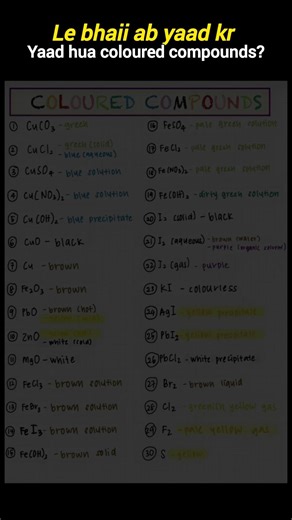 Le bhaii ab yaad kr
Yaad hua coloured compounds?
COLOURED COMPOUNDS
① CuCO₃ - green
② CuCl₂ - green (solid)
- blue (aqueous)
③ CuSO₄ - blue solution
④ Cu(NO₃)₂ - blue solution
⑤ Cu(OH)₂ - blue precipitate
⑥ CuO - black
⑦ Cu - brown
⑧ Fe₂O₃ - brown
⑨ PbO - brown (hot)
⑩ ZnO
- white (cold)
⑪ MgO - white
⑫ FeCl₃ - brown solution
⑬ FeBr₃ - brown solution
⑭ FeI₃ - brown solution
⑮ Fe(OH)₃ - brown solid
⑯ FeSO₄ - pale green solution
⑰ FeCl₂ - pale green solution
⑱ Fe(NO₃)₂ - pale green solution
⑲ Fe(OH)₂ - dirty green solution
⑳ I₂ (solid) - black
㉑ I₂ (aqueous) - brown (water)
- purple (organic solvent)
㉒ I₂ (gas) - purple
㉓ KI - colourless
㉔ AgI - yellow precipitate
㉕ PbI₂ - yellow precipitate
㉖ PbCl₂ - white precipitate
㉗ Br₂ - brown liquid
㉘ Cl₂ - greenish yellow gas
㉙ F₂ - pale yellow gas
㉚ S - yellow